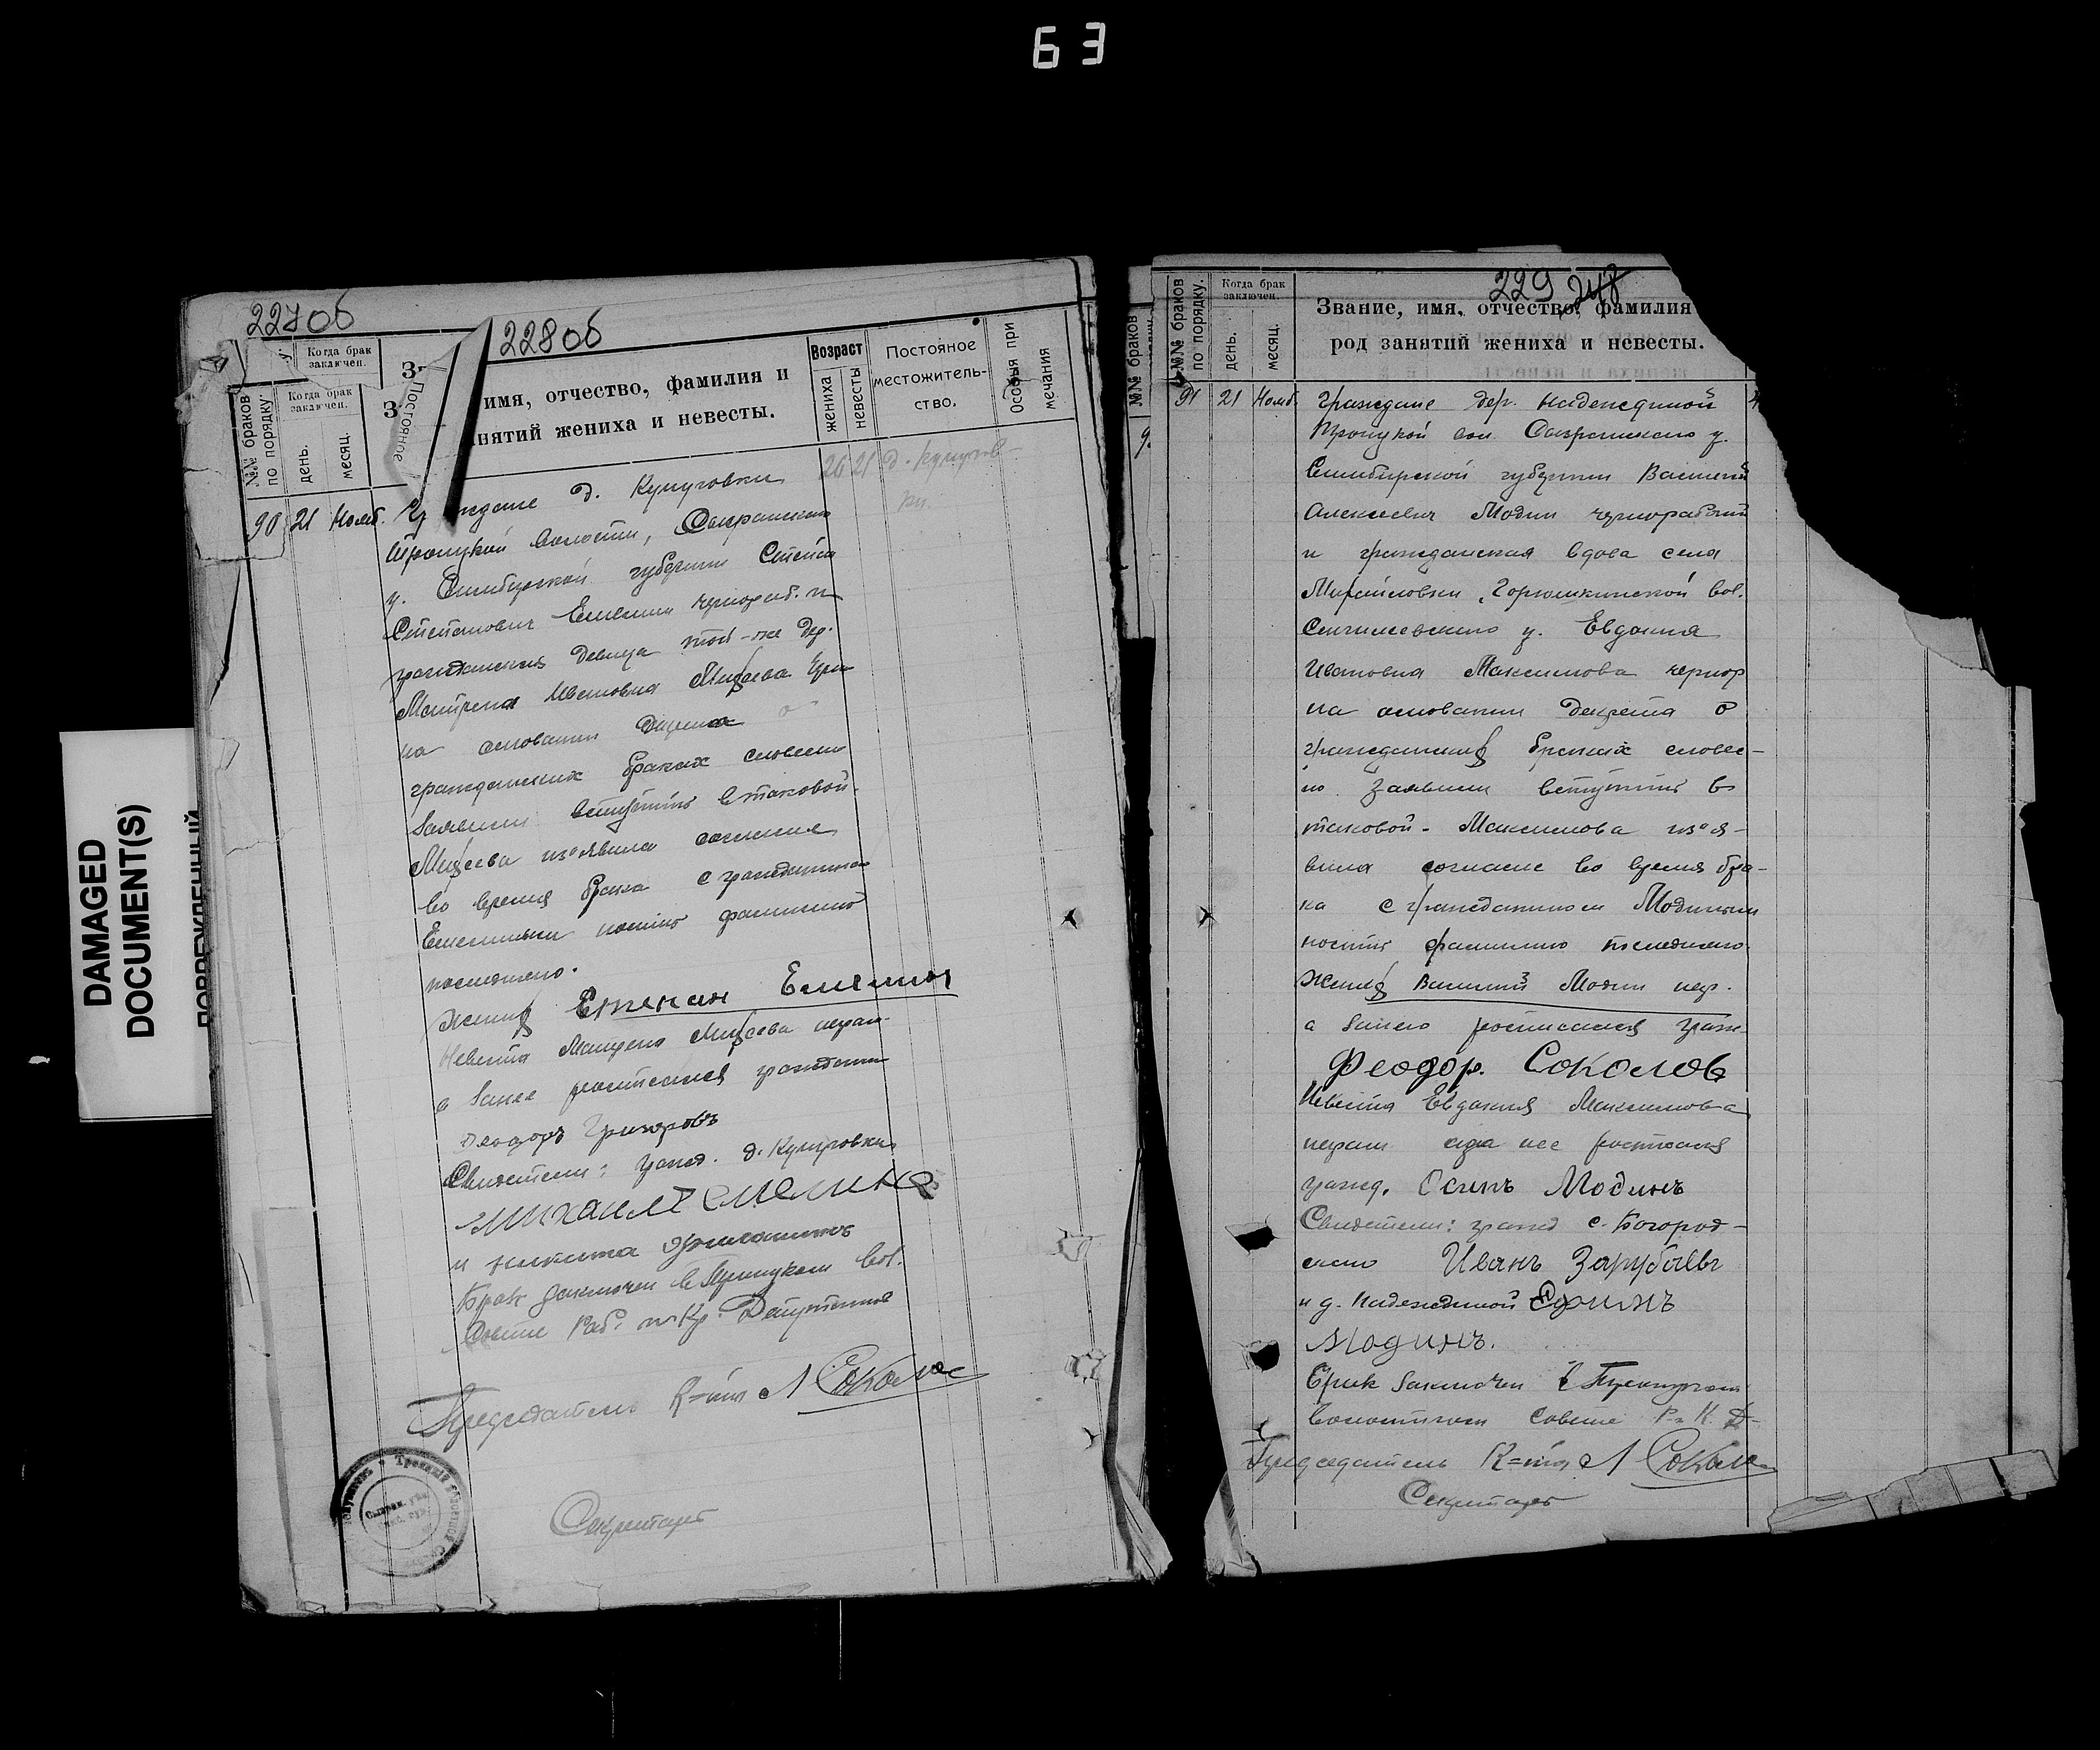 63
DAMAGED
DOCUMENT(S)
227об
228об
Когда брак
заключен.
№№ браков
по порядку.
Когда брак
заключен.
день.
месяц.
Постояное
имя, отчество, фамилия и
нятий жениха и невесты.
Возраст
жениха
невесты
Постояное
местожитель-
ство.
Особыя при
мечания
90 21 Нояб.
д. Купуговки 26 21 д. Купугов-
ки.
Троицкой волости, Сызранскаго
у. Симбирской губернии Степан
Степанович Емелин чернораб. и
гражданская девица той-же дер.
Матрена Ивановна Михеева
на основании декрета о
гражданских браках словесно
заявили вступить в таковой.
Михеева изъявила согласие
во время брака с гражданином
Емелиным носить фамилию
последнего.
Жених Степан Емелин
Невеста Матрена Михеева неграм.
а за нее росписался гражданин
Свидетели: гражд. д. Купуговки
Михаил Емелин
и Никита
Брак заключен в Троицком Вол.
Совете Раб. и Кр. Депутатов
Председатель К-та Соколов
Секретарь
229 247
№№ браков
№№ браков
по порядку.
Когда брак
заключен.
день.
месяц.
Звание, имя, отчество, фамилия
род занятий жениха и невесты.
91 21 Нояб. Граждане дер. Надеждиной
Троицкой вол Сызранскаго у.
Симбирской губернии Василий
Алексеевич Модин чернорабочий
и гражданская вдова села
Горюшкинской вол.
Сенгилеевскаго у. Евдокия
Ивановна Максимова чернор
на основании декрета о
гражданских браках словес-
но заявили вступить в
таковой. Максимова изъя-
вила согласие во время бра-
ка с гражданином Модиным
носить фамилию последнего.
Жених Василий Модин нер.
а за него росписался граж
Феодор. Соколов
Невеста Евдокия Максимова
неграм а за нее росписался
гражд. Осипъ Модинъ
Свидетели: гражд с. Богород-
скаго Иванъ Зарубаевъ
и д. Надеждиной
Модинъ.
Брак заключен в Троицком
Волостном Совете Р. К. Д-
Председатель К-та Соколов
Секретарь